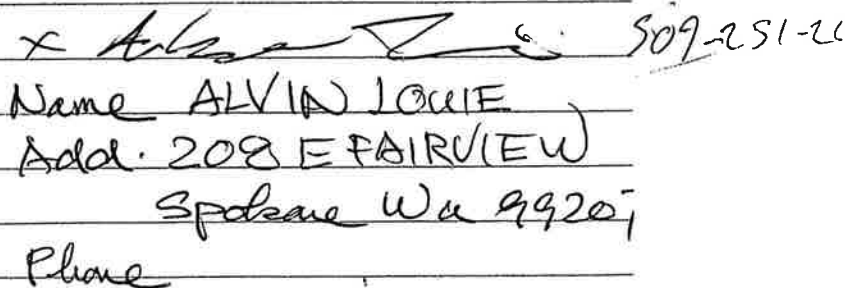 x 509-251-20
Name ALVIN LOUIE
Add. 208 E FAIRVIEW
Spokane Wa 99207
Phone